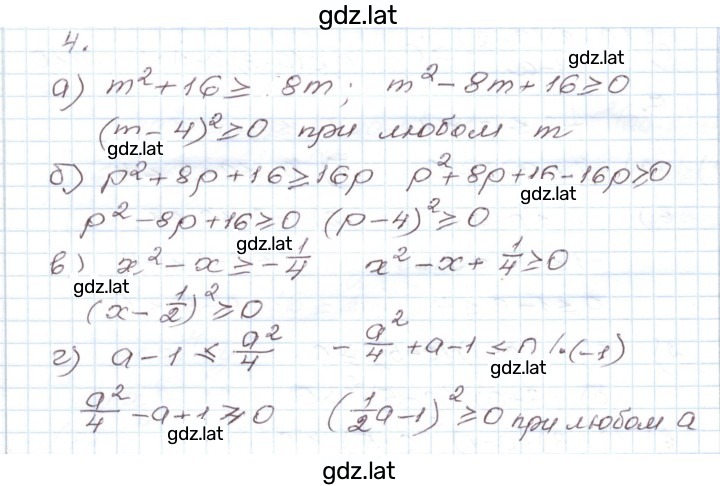 gdz.lat
4.
gdz.lat
а) m² + 16 ≥ 8m; m² - 8m + 16 ≥ 0
(m - 4)² ≥ 0 при любом m
gdz.lat
б) p² + 8p + 16 ≥ 16p p² + 8p + 16 - 16p ≥ 0
gdz.lat
p² - 8p + 16 ≥ 0 (p - 4)² ≥ 0
gdz.lat
в) x² - x ≥ -1/4 x² - x + 1/4 ≥ 0
gdz.lat
(x - 1/2)² ≥ 0
г) a - 1 ≤ a²/4 - a²/4 + a - 1 ≤ 0 /·(-1)
gdz.lat
a²/4 - a + 1 ≥ 0 (1/2 a - 1)² ≥ 0 при любом a
gdz.lat
gdz.lat